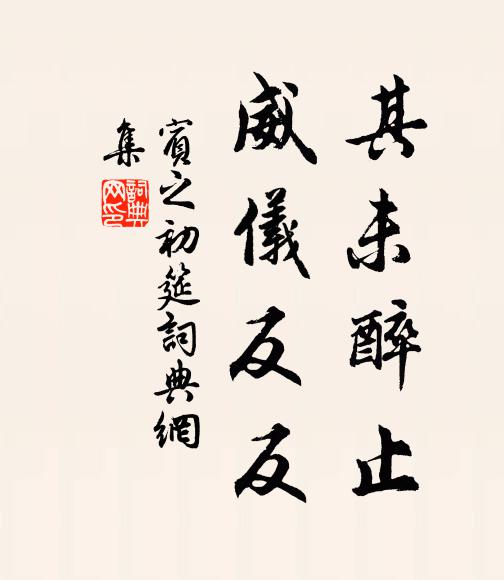 其未醉止
威儀反反
賓之初筵詞典網
集
詞典
网印